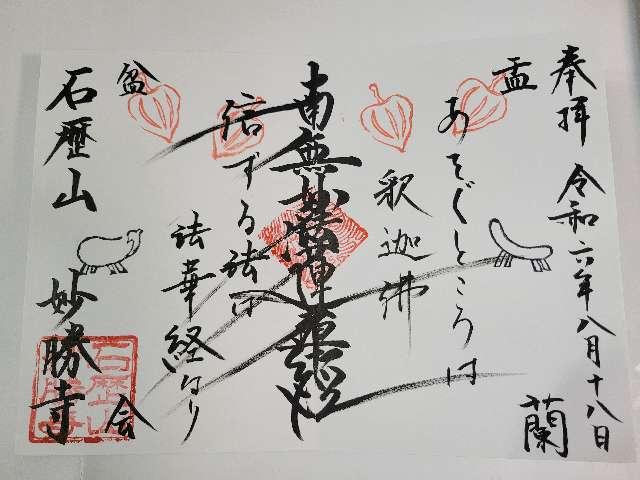 奉拝 令和六年八月十八日
盂
蘭
あをぐところは
釈迦佛
南無妙法蓮華経
信ずる法は
法華経なり
盆
会
石歴山 妙勝寺